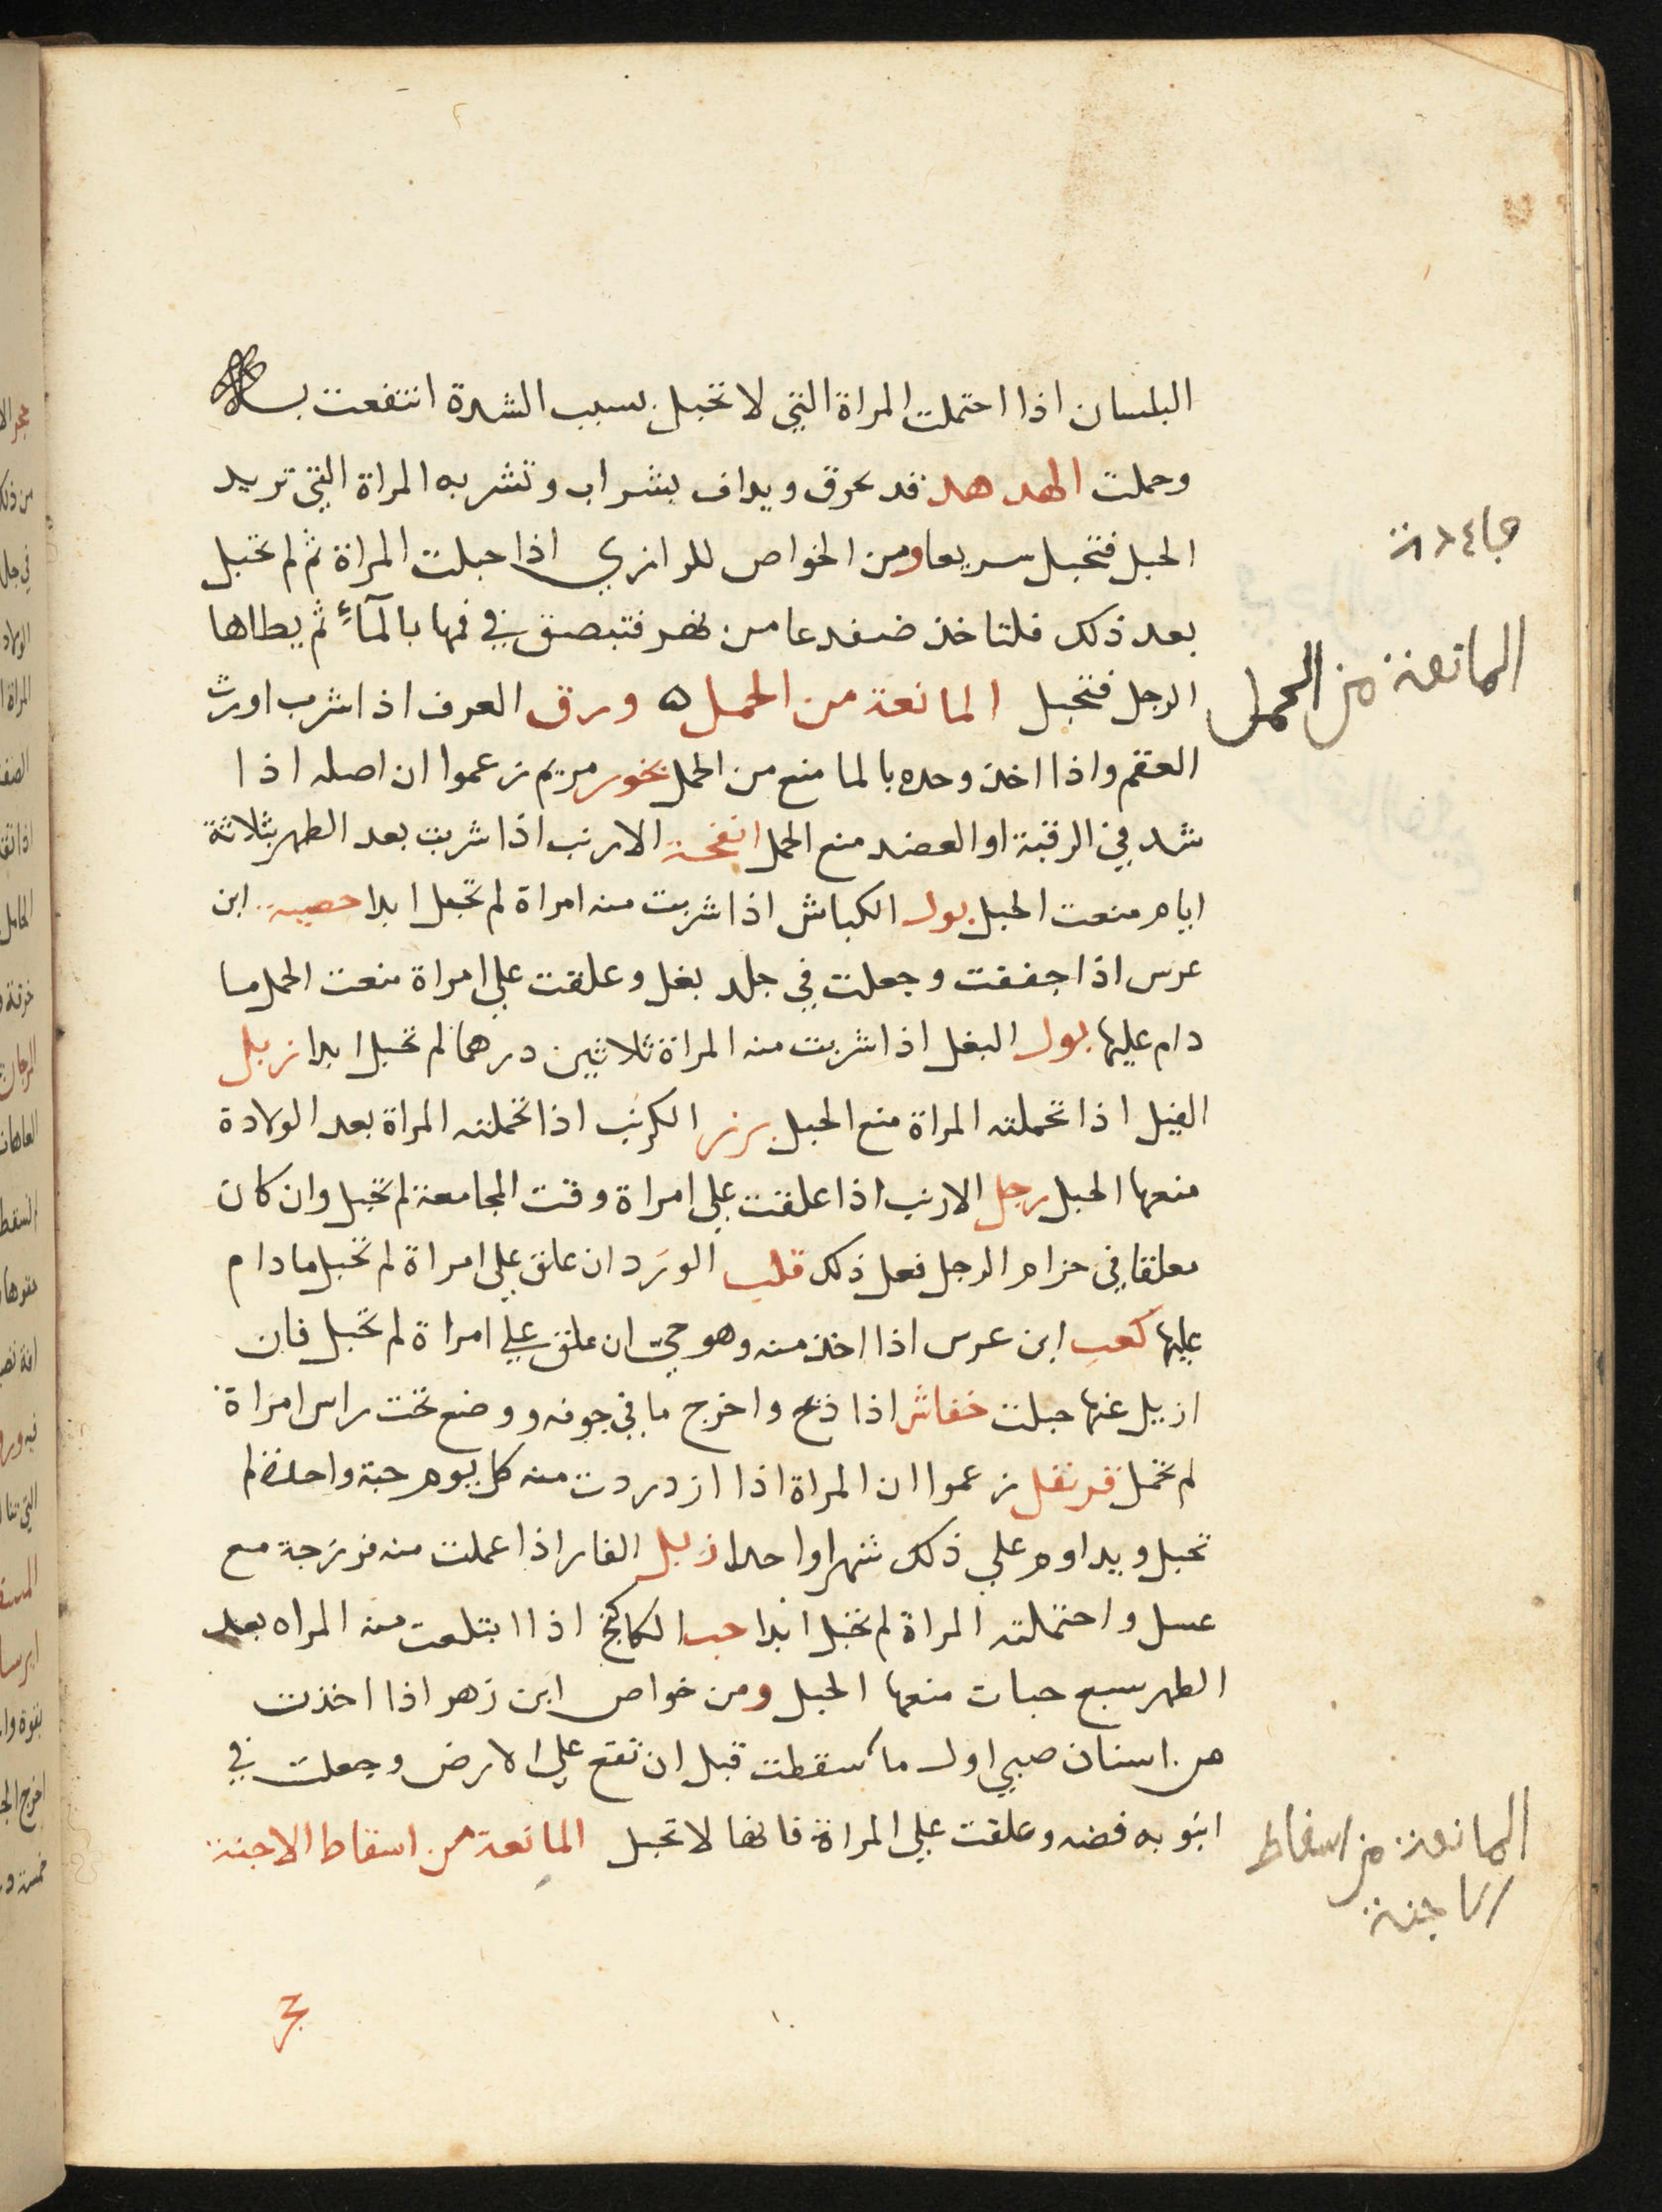 البلسان اذا احتملت المراة التي لا تحبل بسبب الشدة انتفعت به
وحملت الهدهد قد يحرق ويداف بشراب وتشربه المراة التي تريد
الحبل فتحبل سريعا ومن الخواص للرازي اذا حبلت المراة ثم لم تحبل
بعد ذلك فلتاخذ ضفدعا من نهر فتبصق في فمها بالمآء ثم يطاها
الرجل فتحبل المانعة من الحمل ٥ ورق العرف اذا شرب اورث
العقم واذا اخذ وحده بالما منع من الحمل بخور مريم زعموا ان اصله اذا
شد في الرقبة او العضد منع الحمل انفحة الارنب اذا شربت بعد الطهر بثلاثة
ايام منعت الحبل بول الكباش اذا شربت منه امراة لم تحبل ابدا خصية ابن
عرس اذا جففت وجعلت في جلد بغل وعلقت علي امراة منعت الحمل ما
دام عليها بول البغل اذا شربت منه المراة ثلاثين درهما لم تحبل ابدا زبل
الفيل اذا تحملته المراة منع الحبل بزر الكرنب اذا تحملته المراة بعد الولادة
منعها الحبل رجل الارنب اذا علقت علي امراة وقت المجامعة لم تحبل وان كان
معلقا في حزام الرجل فعل ذلك قلب الورد ان علق علي امراة لم تحبل ما دام
عليها كعب ابن عرس اذا اخذ منه وهو حي ان علق علي امراة لم تحبل فان
ازيل عنها حبلت خفاش اذا ذبح واخرج ما في جوفه ووضع تحت راس امراة
لم تحمل قرنفل زعموا ان المراة اذا ازدردت منه كل يوم حبة واحدة لم
تحبل ويداوم علي ذلك شهرا واحدا زبل الفار اذا عملت منه فرزجة مع
عسل واحتملته المراة لم تحبل ابدا حب الكاكنج اذا ابتلعت منه المراه بعد
الطهر سبع حبات منعها الحبل ومن خواص ابن زهر اذا اخذت
من اسنان صبي اول ما سقطت قبل ان تقع علي الارض وجعلت في
انبوبه فضه وعلقت علي المراة فانها لا تحبل المانعة من اسقاط الاجنة
المانعة من الحمل
المانعة من اسقاط
الاجنة